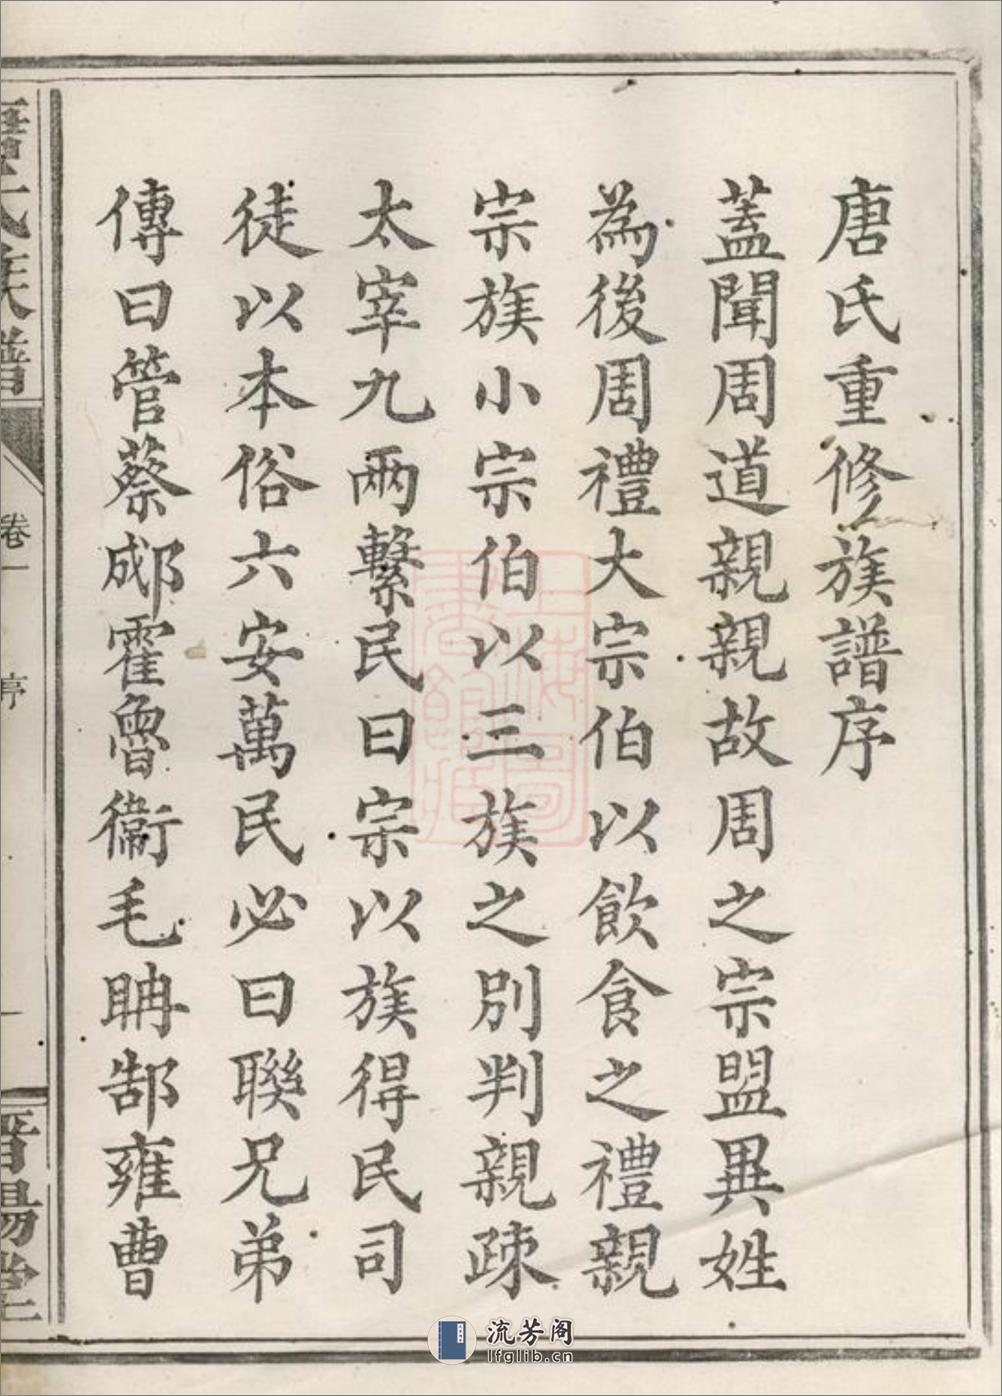 唐氏重修族譜序
蓋聞周道親親故周之宗盟異姓
為後周禮大宗伯以飲食之禮親
宗族小宗伯以三族之別判親疎
太宰九兩繫民曰宗以族得民司
徒以本俗六安萬民必曰聯兄弟
傳曰管蔡郕霍魯衞毛聃郜雍曹
唐氏族譜
卷一
序
一
晉陽堂
流芳阁
lfglib.cn